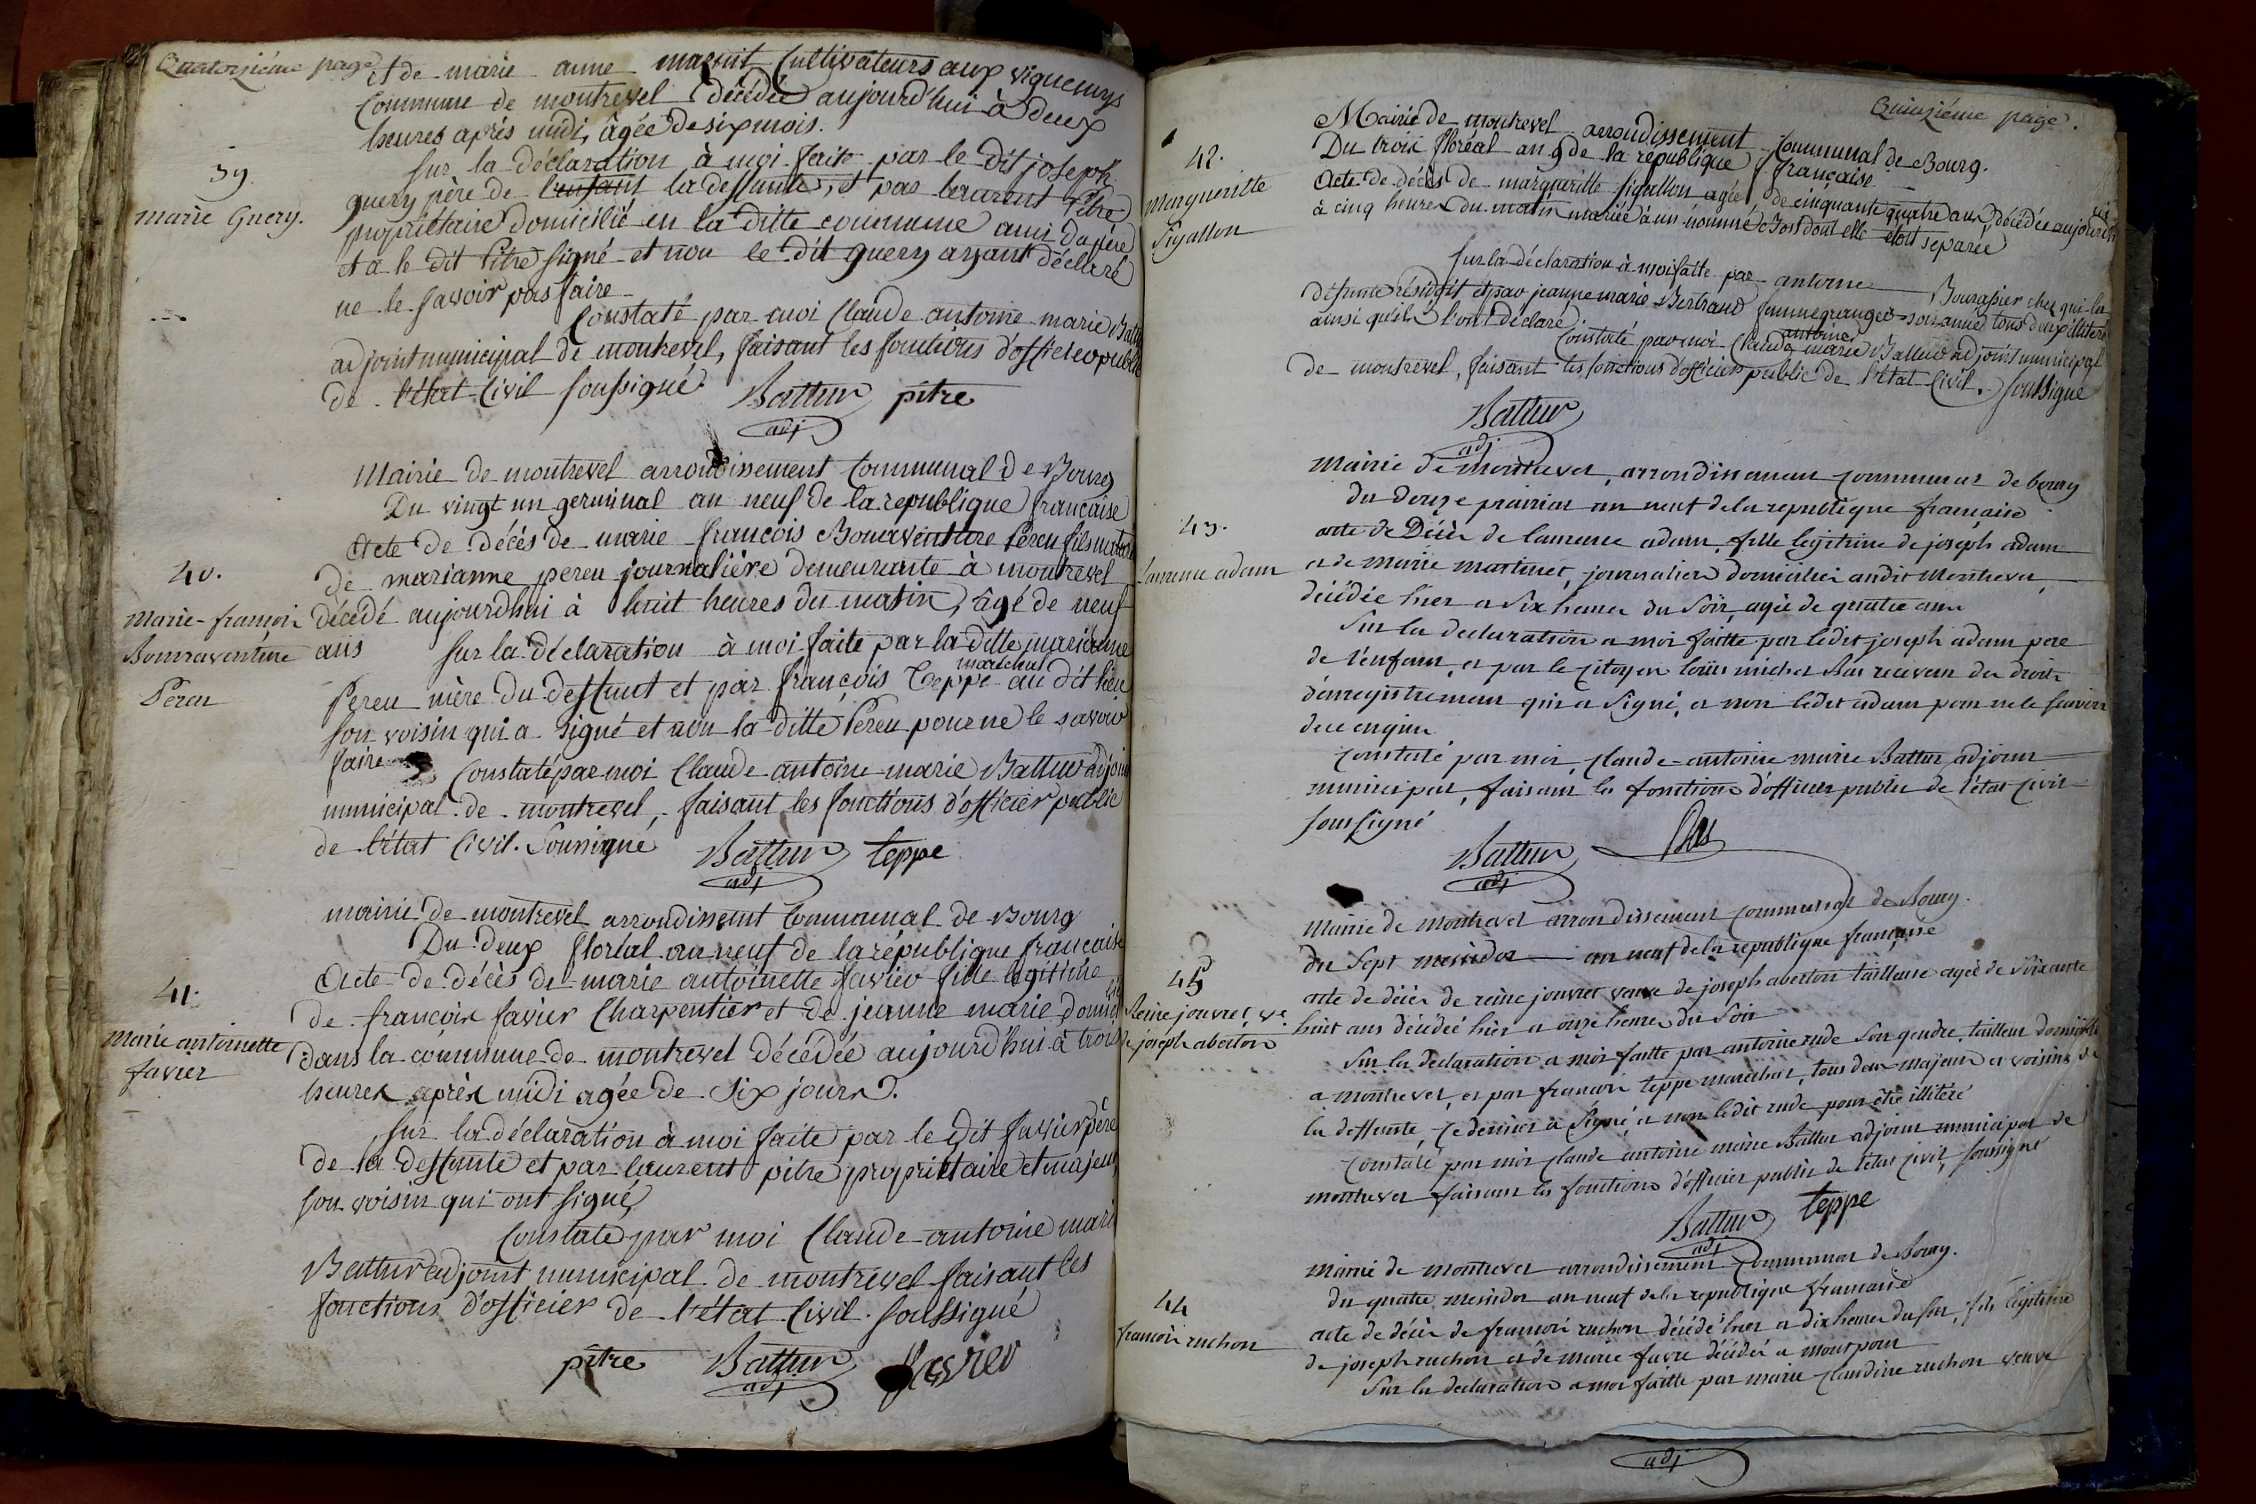 Quatorziéme page
et de marie anne Cultivateurs aux vignemys
Commune de montrevel décédée aujourd'hui à deux
heures après midi, âgée de six mois.
39.
marie Guery.
Sur la déclaration à moi faite par le dit joseph
guery père de l'enfant la deffunte, et par laurent Pitre
propriétaire domicilié en la ditte commune ami du père
et a le dit Pitre signé et non le dit guery ayant déclaré
ne le savoir pas faire
Constaté par moi Claude antoine marie Battur
adjoint municipal de montrevel, faisant les fonctions d'officier public
de l'état Civil soussigné. Battur pitre
adj
Mairie de montrevel arrondissement Communal de Bourg
Du vingt un germinal an neuf de la republique francaise
40.
Marie-françois
Bonnaventure
Pereu
Acte de décés de marie françois Bonaventure Pereu fils naturel
de marianne pereu journalière demeurante à montrevel
décédé aujourdhui à huit heures du matin, âgé de neuf
ans Sur la déclaration à moi faite par la ditte marianne
Pereu mère du deffunt et par françois Teppe maréchal au dit lieu
son voisin qui a signé et non la ditte Pereu pour ne le savoir
faire Constaté par moi Claude antoine marie Battur adjoint
municipal de montrevel, faisant les fonctions d'officier public
de l'état Civil. Soussigné Battur teppe
adj
mairie de montrevel arrondissement Communal de Bourg
Du deux floréal an neuf de la république francaise
41.
Marie antoinette
favier
Acte de décès de marie antoinette favier fille légitime
de francois favier Charpentier et de jeanne marie
dans la commune de montrevel décédée aujourd'hui à trois
heures après midi agée de six jours.
Sur la déclaration à moi faite par le dit favier père
de la deffunte et par laurent pitre propriétaire et majeur
son voisin qui ont signé
Constaté par moi Claude antoine marie
Battur adjoint municipal de montrevel faisant les
fonctions d'officier de l'état Civil. Soussigné
pitre Battur favier
adj
Quinziéme page.
Mairie de montrevel arrondissement Communal de Bourg.
Du trois floréal an 9 de la république française
42.
Margueritte
Sigallon
Acte de décès de margueritte Sigallon agée de cinquante quatre ans, décédée aujourd'hui
à cinq heures du matin mariée à un nommé Bos dont elle étoit séparée
Sur la déclaration à moi faite par antoine Bourasier chez qui la
défunte résidoit et par jeanne marie Bertrand femme granger son amie tous deux illiterés
ainsi qu'ils l'ont déclaré.
Constaté par moi Claude antoine marie Battur adjoint municipal
de montrevel, faisant les fonctions d'officier public de l'état Civil. Soussigné
Battur
adj
Mairie de montrevel, arrondissement communal de bourg
du douze prairial an neuf de la republique francaise
43.
Laurence adam
acte de Décès de laurence adam, fille légitime de joseph adam
et de marie martinet, journalier domicilié audit Montrevel,
décédée hier a six heures du soir, agée de quatre ans
Sur la declaration a moi faitte par ledit joseph adam pere
de l'enfant, et par le citoyen louis michel Plas receveur du droit
d'enregistrement qui a signé, et non ledit adam pour ne le savoir
de ce enquis
Constaté par moi, Claude-antoine marie Battur adjoint
municipal, faisant les fonctions d'officier public de l'état civil
soussigné
Battur Plas
adj
Mairie de Montrevel arrondissement communal de Bourg.
du sept messidor an neuf de la republique française
45
Reine jouvret ve.
de joseph aberton
acte de décès de reine jouvret veuve de joseph aberton tailleuse agée de soixante
huit ans décédée hier a onze heures du soir
Sur la déclaration a moi faitte par antoine rude son gendre, tailleur domicilié
a montrevel, et par francois teppe marechal, tous deux majeurs et voisins de
la deffunte, ce dernier a signé, et non ledit rude pour être illiteré
Constaté par moi Claude antoine marie Battur adjoint municipal de
montrevel faisant les fonctions d'officier public de l'état civil, soussigné
Battur teppe
adj
Mairie de montrevel arrondissement communal de Bourg.
du quatre messidor an neuf de la republique francaise
44
francois ruchon
acte de décès de francois ruchon décédé hier a dix heures du soir, fils légitime
de joseph ruchon et de marie favre décédés a
Sur la declaration a moi faitte par marie claudine ruchon veuve
adj